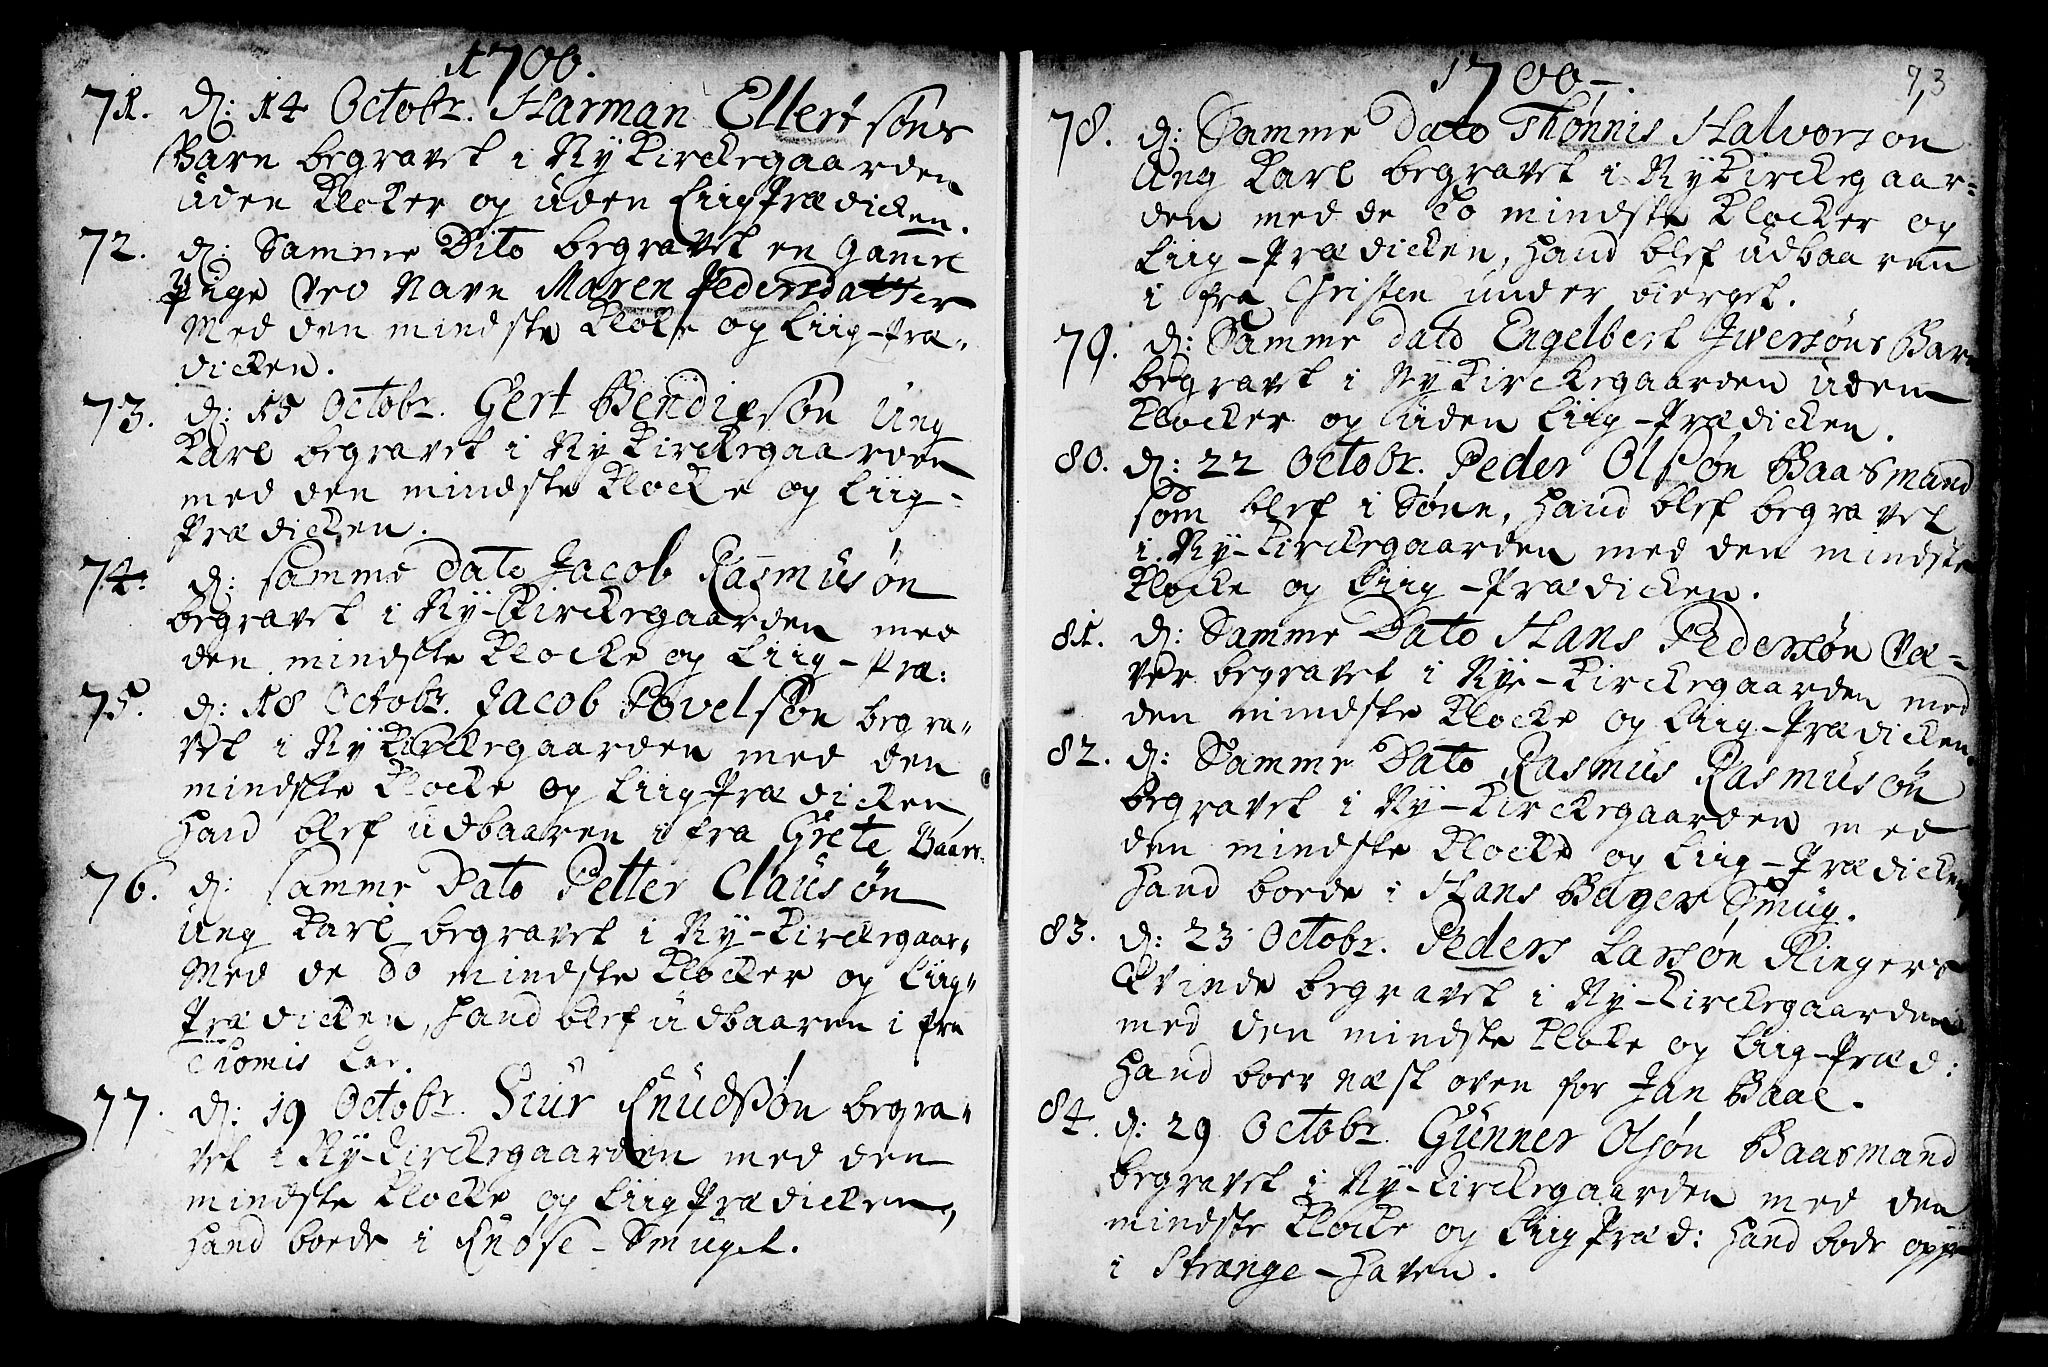 1700.
71. d: 14 Octobr. Harman Ellertsøns
Barn begravet i Ny Kirckegaarden
uden Klocker og uden LiigPrædicken.
72. d: Samme Dito begravet en gamel
Pige ved Navn Maren Pedersdatter
Med den mindste Klocke og Liig-Præ-
dicken.
73. d: 15 Octobr. Gert Bendixsøn Ung
Karl begravet i Ny Kirckegaarden
med den mindste Klocke og Liig-
Prædicken.
74. d: samme Dato Jacob Rasmusøn
begravet i Ny-Kirckegaarden med
den mindste Klocke og Liig-Præ:
75. d: 18 Octobr. Jacob Povelsøn begra-
vet i Ny Kirckegaarden med den
mindste Klocke og LiigPrædicken
Hand blef udbaaren i fra Grete Baars.
76. d: samme Dato Petter Clausøn
Ung Karl begravet i Ny-Kirckegaar-
Med de to mindste Klocker og Liig-
Prædicken, Hand blef udbaaren i fra
Thomis
77. d: 19 Octobr. Siur Knudsøn begra-
vet i Ny-Kirckegaarden med den
mindste Klocke og LiigPrædicken,
Hand boede i Knøse-Smuget.
1700.
93
78. d: Samme Dato Thønnis Halvorsøn
Ung Karl begravet i Ny Kirckegaar-
den med de to mindste Klocker og
Liig-Prædicken, Hand blef udbaaren
i fra Christen under bierget.
79. d: Samme Dato Engelbert Iversøns Barn
begravet i Ny Kirckegaarden uden
Klocker og uden Liig-Prædicken.
80. d: 22 Octobr. Peder Olsøn Baasmand
som blef i Søen, Hand blef begravet
i Ny-Kirckegaarden med den mindste
Klocke og Liig-Prædicken.
81. d: Samme Dato Hans Pedersøn Væ-
ver begravet i Ny-Kirckegaarden med
den mindste Klocke og Liig-Prædicken.
82. d: Samme Dato Rasmus Rasmusøn
begravet i Ny-Kirckegaarden med
den mindste Klocke og Liig-Prædicken
Hand boede i Hans Bager Smug.
83. d: 23 Octobr. Peders Larsøn Ringers
Kvinde begravet i Ny-Kirckegaarden
med den mindste Klocke og Liig-Præd:
Hand boer næst oven for Jan Baal.
84. d: 29 Octobr. Gunner Olsøn Baasmand
begravet i Ny-Kirckegaarden med den
mindste Klocke og LiigPræd: Hand bode oppe
i Strange-Haven.